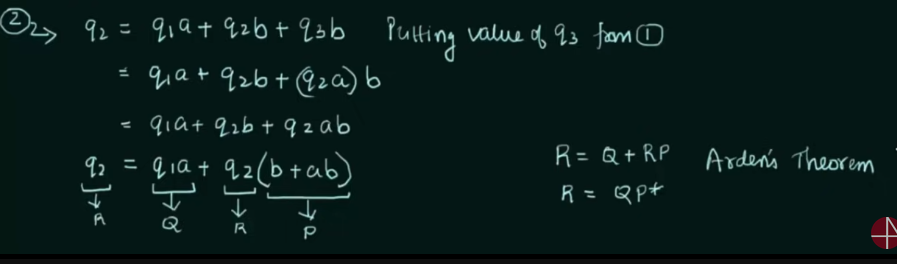 ② → q₂ = q₁a + q₂b + q₃b Putting value of q₃ from ①
= q₁a + q₂b + (q₂a) b
= q₁a + q₂b + q₂ab
q₂ = q₁a + q₂(b + ab)
R Q R P
R = Q + RP Arden's Theorem
R = QP*